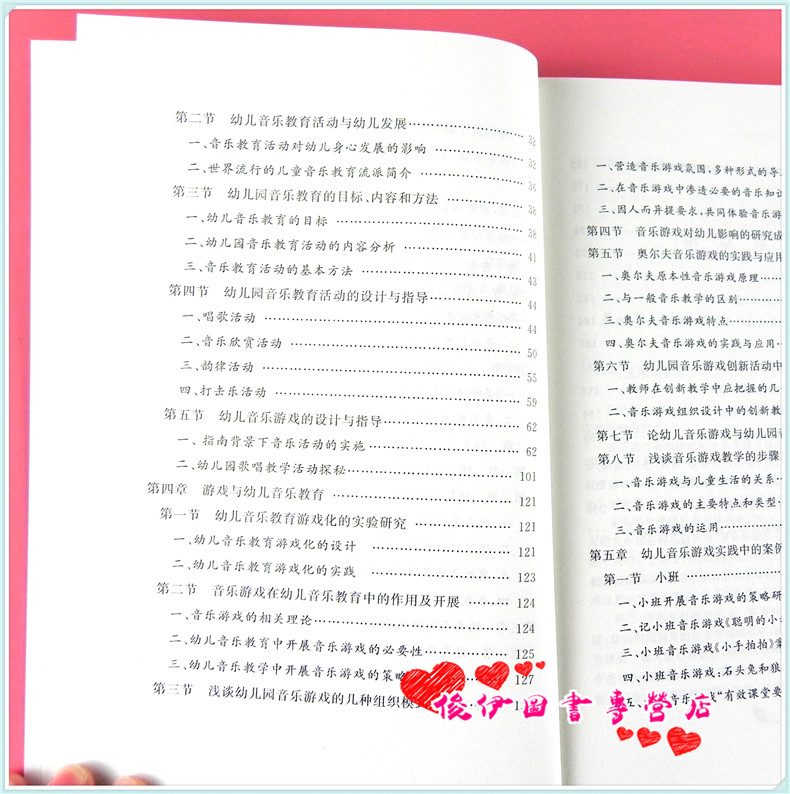 第二节 幼儿音乐教育活动与幼儿发展………………32
一、音乐教育活动对幼儿身心发展的影响………………32
二、世界流行的儿童音乐教育流派简介………………36
第三节 幼儿园音乐教育的目标、内容和方法………………38
一、幼儿音乐教育的目标………………38
二、幼儿园音乐教育活动的内容分析………………41
三、音乐教育活动的基本方法………………43
第四节 幼儿园音乐教育活动的设计与指导………………44
一、唱歌活动………………44
二、音乐欣赏活动………………50
三、韵律活动………………55
四、打击乐活动………………59
第五节 幼儿音乐游戏的设计与指导………………62
一、指南背景下音乐活动的实施………………62
二、幼儿园歌唱教学活动探秘………………101
第四章 游戏与幼儿音乐教育………………121
第一节 幼儿音乐教育游戏化的实验研究………………121
一、幼儿音乐教育游戏化的设计………………121
二、幼儿音乐教育游戏化的实践………………123
第二节 音乐游戏在幼儿音乐教育中的作用及开展………124
一、音乐游戏的相关理论………………124
二、幼儿音乐教育中开展音乐游戏的必要性………………125
三、幼儿音乐教学中开展音乐游戏的策略 127
第三节 浅谈幼儿园音乐游戏的几种组织模
一、营造音乐游戏氛围,多种形式的导
二、在音乐游戏中渗透必要的音乐知识
三、因人而异提要求,共同体验音乐游
第四节 音乐游戏对幼儿影响的研究成
第五节 奥尔夫音乐游戏的实践与应用
一、奥尔夫原本性音乐游戏原理………
二、与一般音乐教学的区别………
三、奥尔夫音乐游戏特点………
四、奥尔夫音乐游戏的实践与应用…
第六节 幼儿园音乐游戏创新活动中
一、教师在创新教学中应把握的几
二、音乐游戏组织设计中的创新教
第七节 论幼儿音乐游戏与幼儿园
第八节 浅谈音乐游戏教学的步骤
一、音乐游戏与儿童生活的关系…
二、音乐游戏的主要特点和类型…
三、音乐游戏的运用………
第五章 幼儿音乐游戏实践中的案例
第一节 小班………
一、小班开展音乐游戏的策略研
二、记小班音乐游戏《聪明的小
三、小班音乐游戏《小手拍拍》案
四、小班音乐游戏:石头兔和狼
五、音乐游戏“有效课堂要
俊伊图書專營店